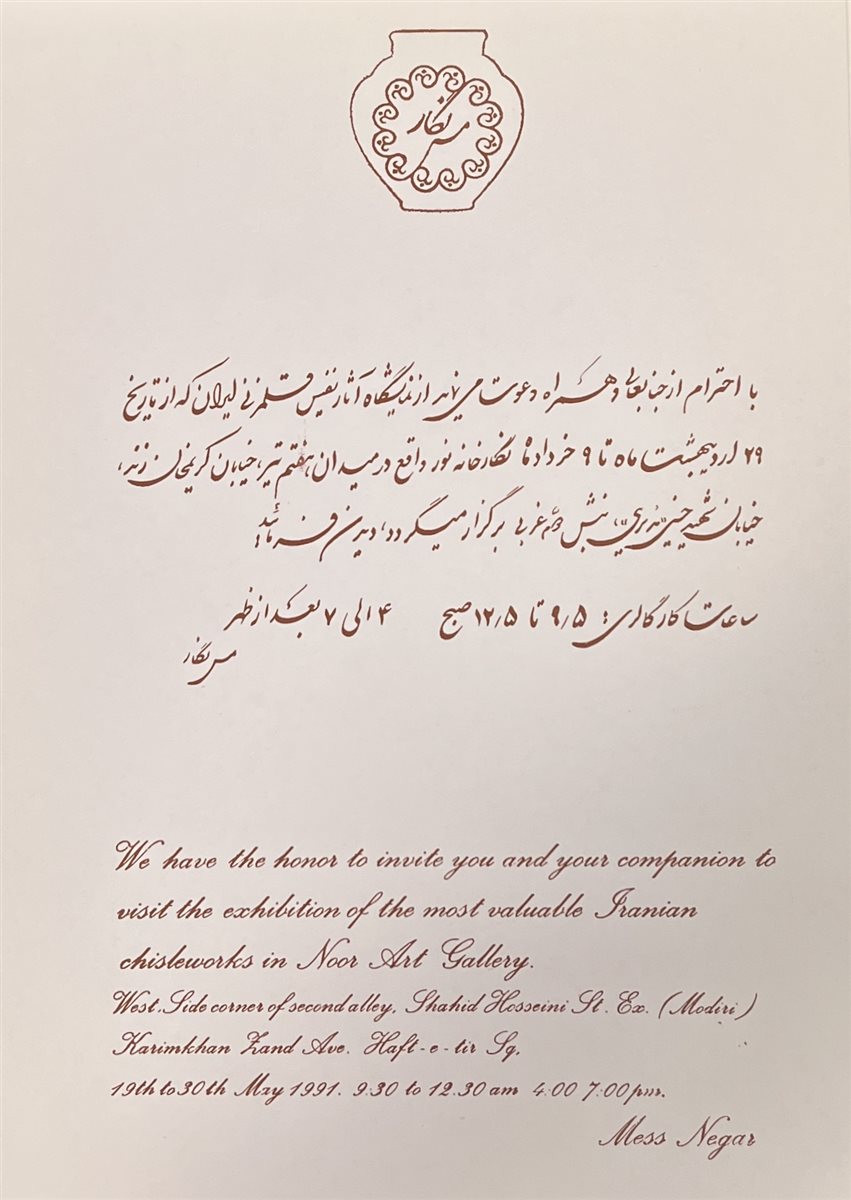 مس نگار
با احترام از جنابعالی و همراه دعوت می‌نماید از نمایشگاه آثار نفیس قلمزنی ایران که از تاریخ
۲۹ اردیبهشت ماه تا ۹ خرداد ماه نگارخانه نور واقع در میدان هفتم تیر، خیابان کریمخان زند،
خیابان شهید حسینی «مدیری»، نبش دوم غربی برگزار میگردد، دیدن فرمائید.
ساعات کار گالری: ۹٫۵ تا ۱۲٫۵ صبح ۴ الی ۷ بعد از ظهر
مس نگار
We have the honor to invite you and your companion to
visit the exhibition of the most valuable Iranian
chisleworks in Noor Art Gallery.
West. Side corner of second alley, Shahid Hosseini St. Ex. (Modiri)
Karimkhan Zand Ave. Haft-e-tir Sq.
19th to 30th May 1991. 9:30 to 12.30 am 4:00 7:00 pm.
Mess Negar